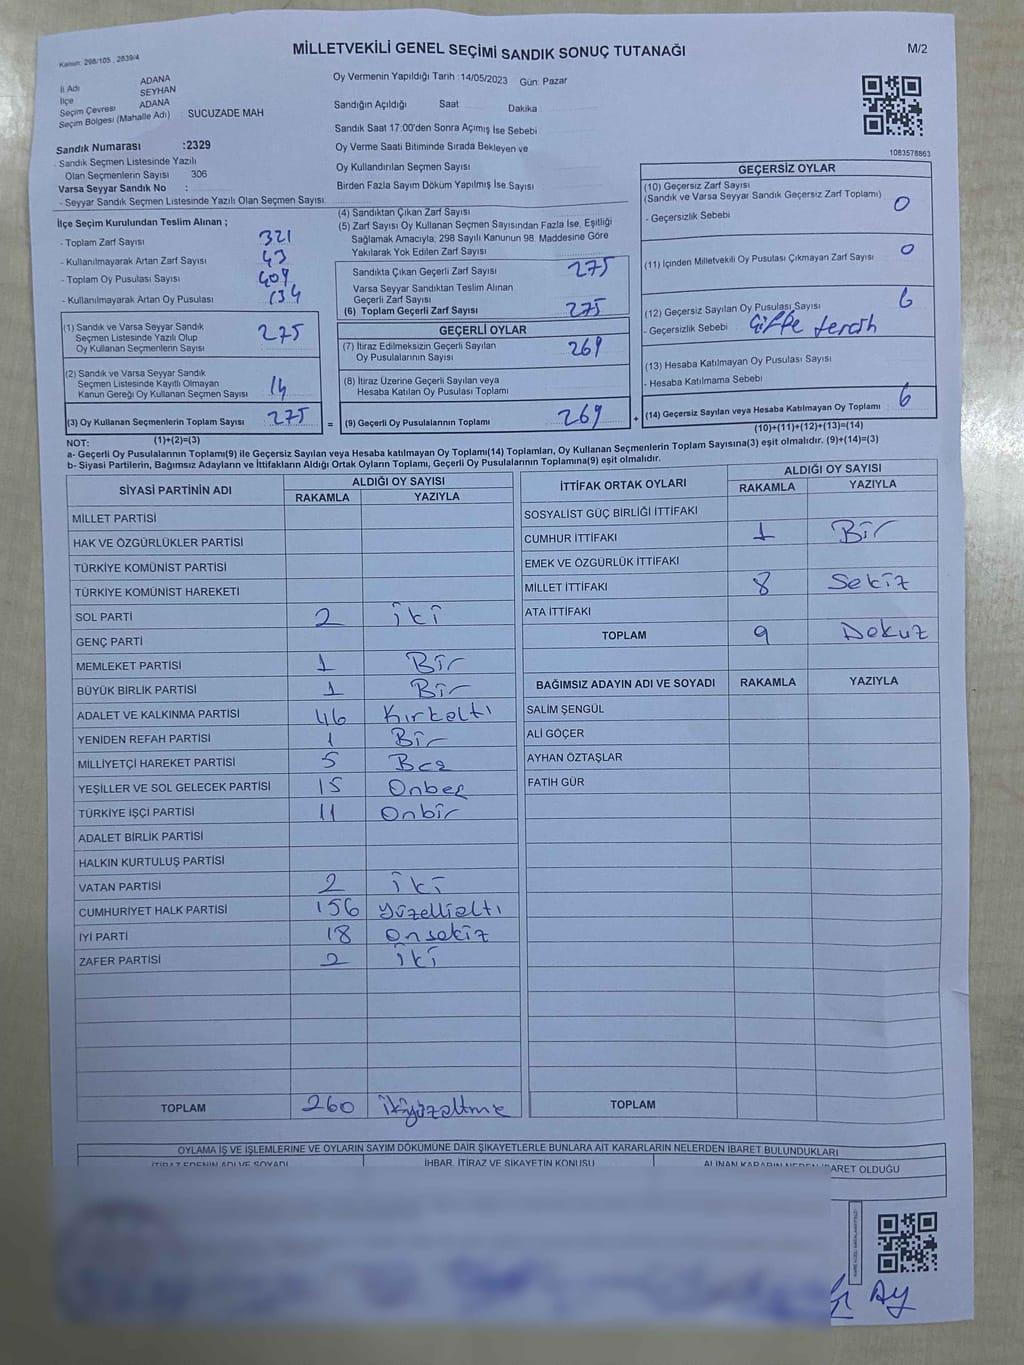 Kanun: 298/105 , 2839/4
MİLLETVEKİLİ GENEL SEÇİMİ SANDIK SONUÇ TUTANAĞI
M/2
İl Adı ADANA
İlçe SEYHAN
Seçim Çevresi ADANA
Seçim Bölgesi (Mahalle Adı) SUCUZADE MAH
Sandık Numarası :2329
- Sandık Seçmen Listesinde Yazılı
Olan Seçmenlerin Sayısı 306
Varsa Seyyar Sandık No :
- Seyyar Sandık Seçmen Listesinde Yazılı Olan Seçmen Sayısı:
Oy Vermenin Yapıldığı Tarih :14/05/2023 Gün: Pazar
Sandığın Açıldığı Saat Dakika
Sandık Saat 17:00'den Sonra Açımış İse Sebebi
Oy Verme Saati Bitiminde Sırada Bekleyen ve
Oy Kullandırılan Seçmen Sayısı
Birden Fazla Sayım Döküm Yapılmış İse Sayısı
1083578863
İlçe Seçim Kurulundan Teslim Alınan ;
- Toplam Zarf Sayısı 321
- Kullanılmayarak Artan Zarf Sayısı 43
- Toplam Oy Pusulası Sayısı 409
- Kullanılmayarak Artan Oy Pusulası 134
(1) Sandık ve Varsa Seyyar Sandık
Seçmen Listesinde Yazılı Olup
Oy Kullanan Seçmenlerin Sayısı 275
(2) Sandık ve Varsa Seyyar Sandık
Seçmen Listesinde Kayıtlı Olmayan
Kanun Gereği Oy Kullanan Seçmen Sayısı 14
(3) Oy Kullanan Seçmenlerin Toplam Sayısı 275 =
(1)+(2)=(3)
(4) Sandıktan Çıkan Zarf Sayısı
(5) Zarf Sayısı Oy Kullanan Seçmen Sayısından Fazla İse, Eşitliği
Sağlamak Amacıyla, 298 Sayılı Kanunun 98. Maddesine Göre
Yakılarak Yok Edilen Zarf Sayısı
Sandıkta Çıkan Geçerli Zarf Sayısı 275
Varsa Seyyar Sandıktan Teslim Alınan
Geçerli Zarf Sayısı
(6) Toplam Geçerli Zarf Sayısı 275
GEÇERLİ OYLAR
(7) İtiraz Edilmeksizin Geçerli Sayılan
Oy Pusulalarının Sayısı 269
(8) İtiraz Üzerine Geçerli Sayılan veya
Hesaba Katılan Oy Pusulası Toplamı
(9) Geçerli Oy Pusulalarının Toplamı 269 +
GEÇERSİZ OYLAR
(10) Geçersiz Zarf Sayısı
(Sandık ve Varsa Seyyar Sandık Geçersiz Zarf Toplamı) 0
- Geçersizlik Sebebi
(11) İçinden Milletvekili Oy Pusulası Çıkmayan Zarf Sayısı 0
(12) Geçersiz Sayılan Oy Pusulası Sayısı 6
- Geçersizlik Sebebi Çiffe tercih
(13) Hesaba Katılmayan Oy Pusulası Sayısı
- Hesaba Katılmama Sebebi
(14) Geçersiz Sayılan veya Hesaba Katılmayan Oy Toplamı 6
(10)+(11)+(12)+(13)=(14)
NOT:
a- Geçerli Oy Pusulalarının Toplamı(9) ile Geçersiz Sayılan veya Hesaba katılmayan Oy Toplamı(14) Toplamları, Oy Kullanan Seçmenlerin Toplam Sayısına(3) eşit olmalıdır. (9)+(14)=(3)
b- Siyasi Partilerin, Bağımsız Adayların ve İttifakların Aldığı Ortak Oyların Toplamı, Geçerli Oy Pusulalarının Toplamına(9) eşit olmalıdır.
SİYASİ PARTİNİN ADI ALDIĞI OY SAYISI
RAKAMLA YAZIYLA
MİLLET PARTİSİ
HAK VE ÖZGÜRLÜKLER PARTİSİ
TÜRKİYE KOMÜNİST PARTİSİ
TÜRKİYE KOMÜNİST HAREKETİ
SOL PARTİ 2 iki
GENÇ PARTİ
MEMLEKET PARTİSİ 1 Bir
BÜYÜK BİRLİK PARTİSİ 1 Bir
ADALET VE KALKINMA PARTİSİ 46 Kırkaltı
YENİDEN REFAH PARTİSİ 1 Bir
MİLLİYETÇİ HAREKET PARTİSİ 5 Beş
YEŞİLLER VE SOL GELECEK PARTİSİ 15 Onbeş
TÜRKİYE İŞÇİ PARTİSİ 11 Onbir
ADALET BİRLİK PARTİSİ
HALKIN KURTULUŞ PARTİSİ
VATAN PARTİSİ 2 iki
CUMHURİYET HALK PARTİSİ 156 yüzellialtı
İYİ PARTİ 18 onsekiz
ZAFER PARTİSİ 2 iki
TOPLAM 260 ikiyüzaltmış
İTTİFAK ORTAK OYLARI ALDIĞI OY SAYISI
RAKAMLA YAZIYLA
SOSYALİST GÜÇ BİRLİĞİ İTTİFAKI
CUMHUR İTTİFAKI 1 Bir
EMEK VE ÖZGÜRLÜK İTTİFAKI
MİLLET İTTİFAKI 8 Sekiz
ATA İTTİFAKI
TOPLAM 9 Dokuz
BAĞIMSIZ ADAYIN ADI VE SOYADI RAKAMLA YAZIYLA
SALİM ŞENGÜL
ALİ GÖÇER
AYHAN ÖZTAŞLAR
FATİH GÜR
TOPLAM
OYLAMA İŞ VE İŞLEMLERİNE VE OYLARIN SAYIM DÖKÜMÜNE DAİR ŞİKAYETLERLE BUNLARA AİT KARARLARIN NELERDEN İBARET BULUNDUKLARI
İTİRAZ EDENİN ADI VE SOYADI İHBAR, İTİRAZ VE ŞİKAYETİN KONUSU ALINAN KARARIN NEDEN İBARET OLDUĞU